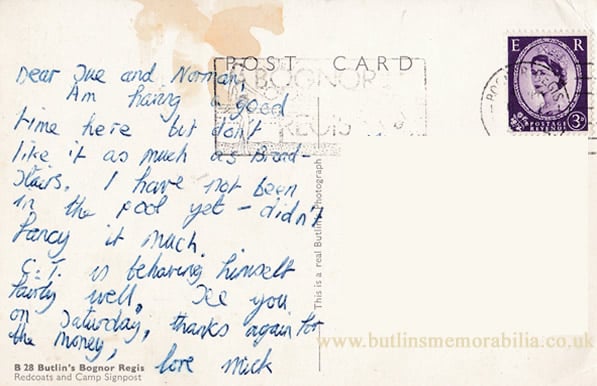 POST CARD
BOGNOR
REGIS
E R
3D
POSTAGE
REVENUE
Dear Sue and Norman,
Am having a good
time here but don't
like it as much as Broad-
stairs. I have not been
in the pool yet - didn't
fancy it much.
C.T. is behaving himself
fairly well, See you
on Saturday, thanks again for
the money, love Mick
This is a real Butlin Photograph
B 28 Butlin's Bognor Regis
Redcoats and Camp Signpost
www.butlinsmemorabilia.co.uk